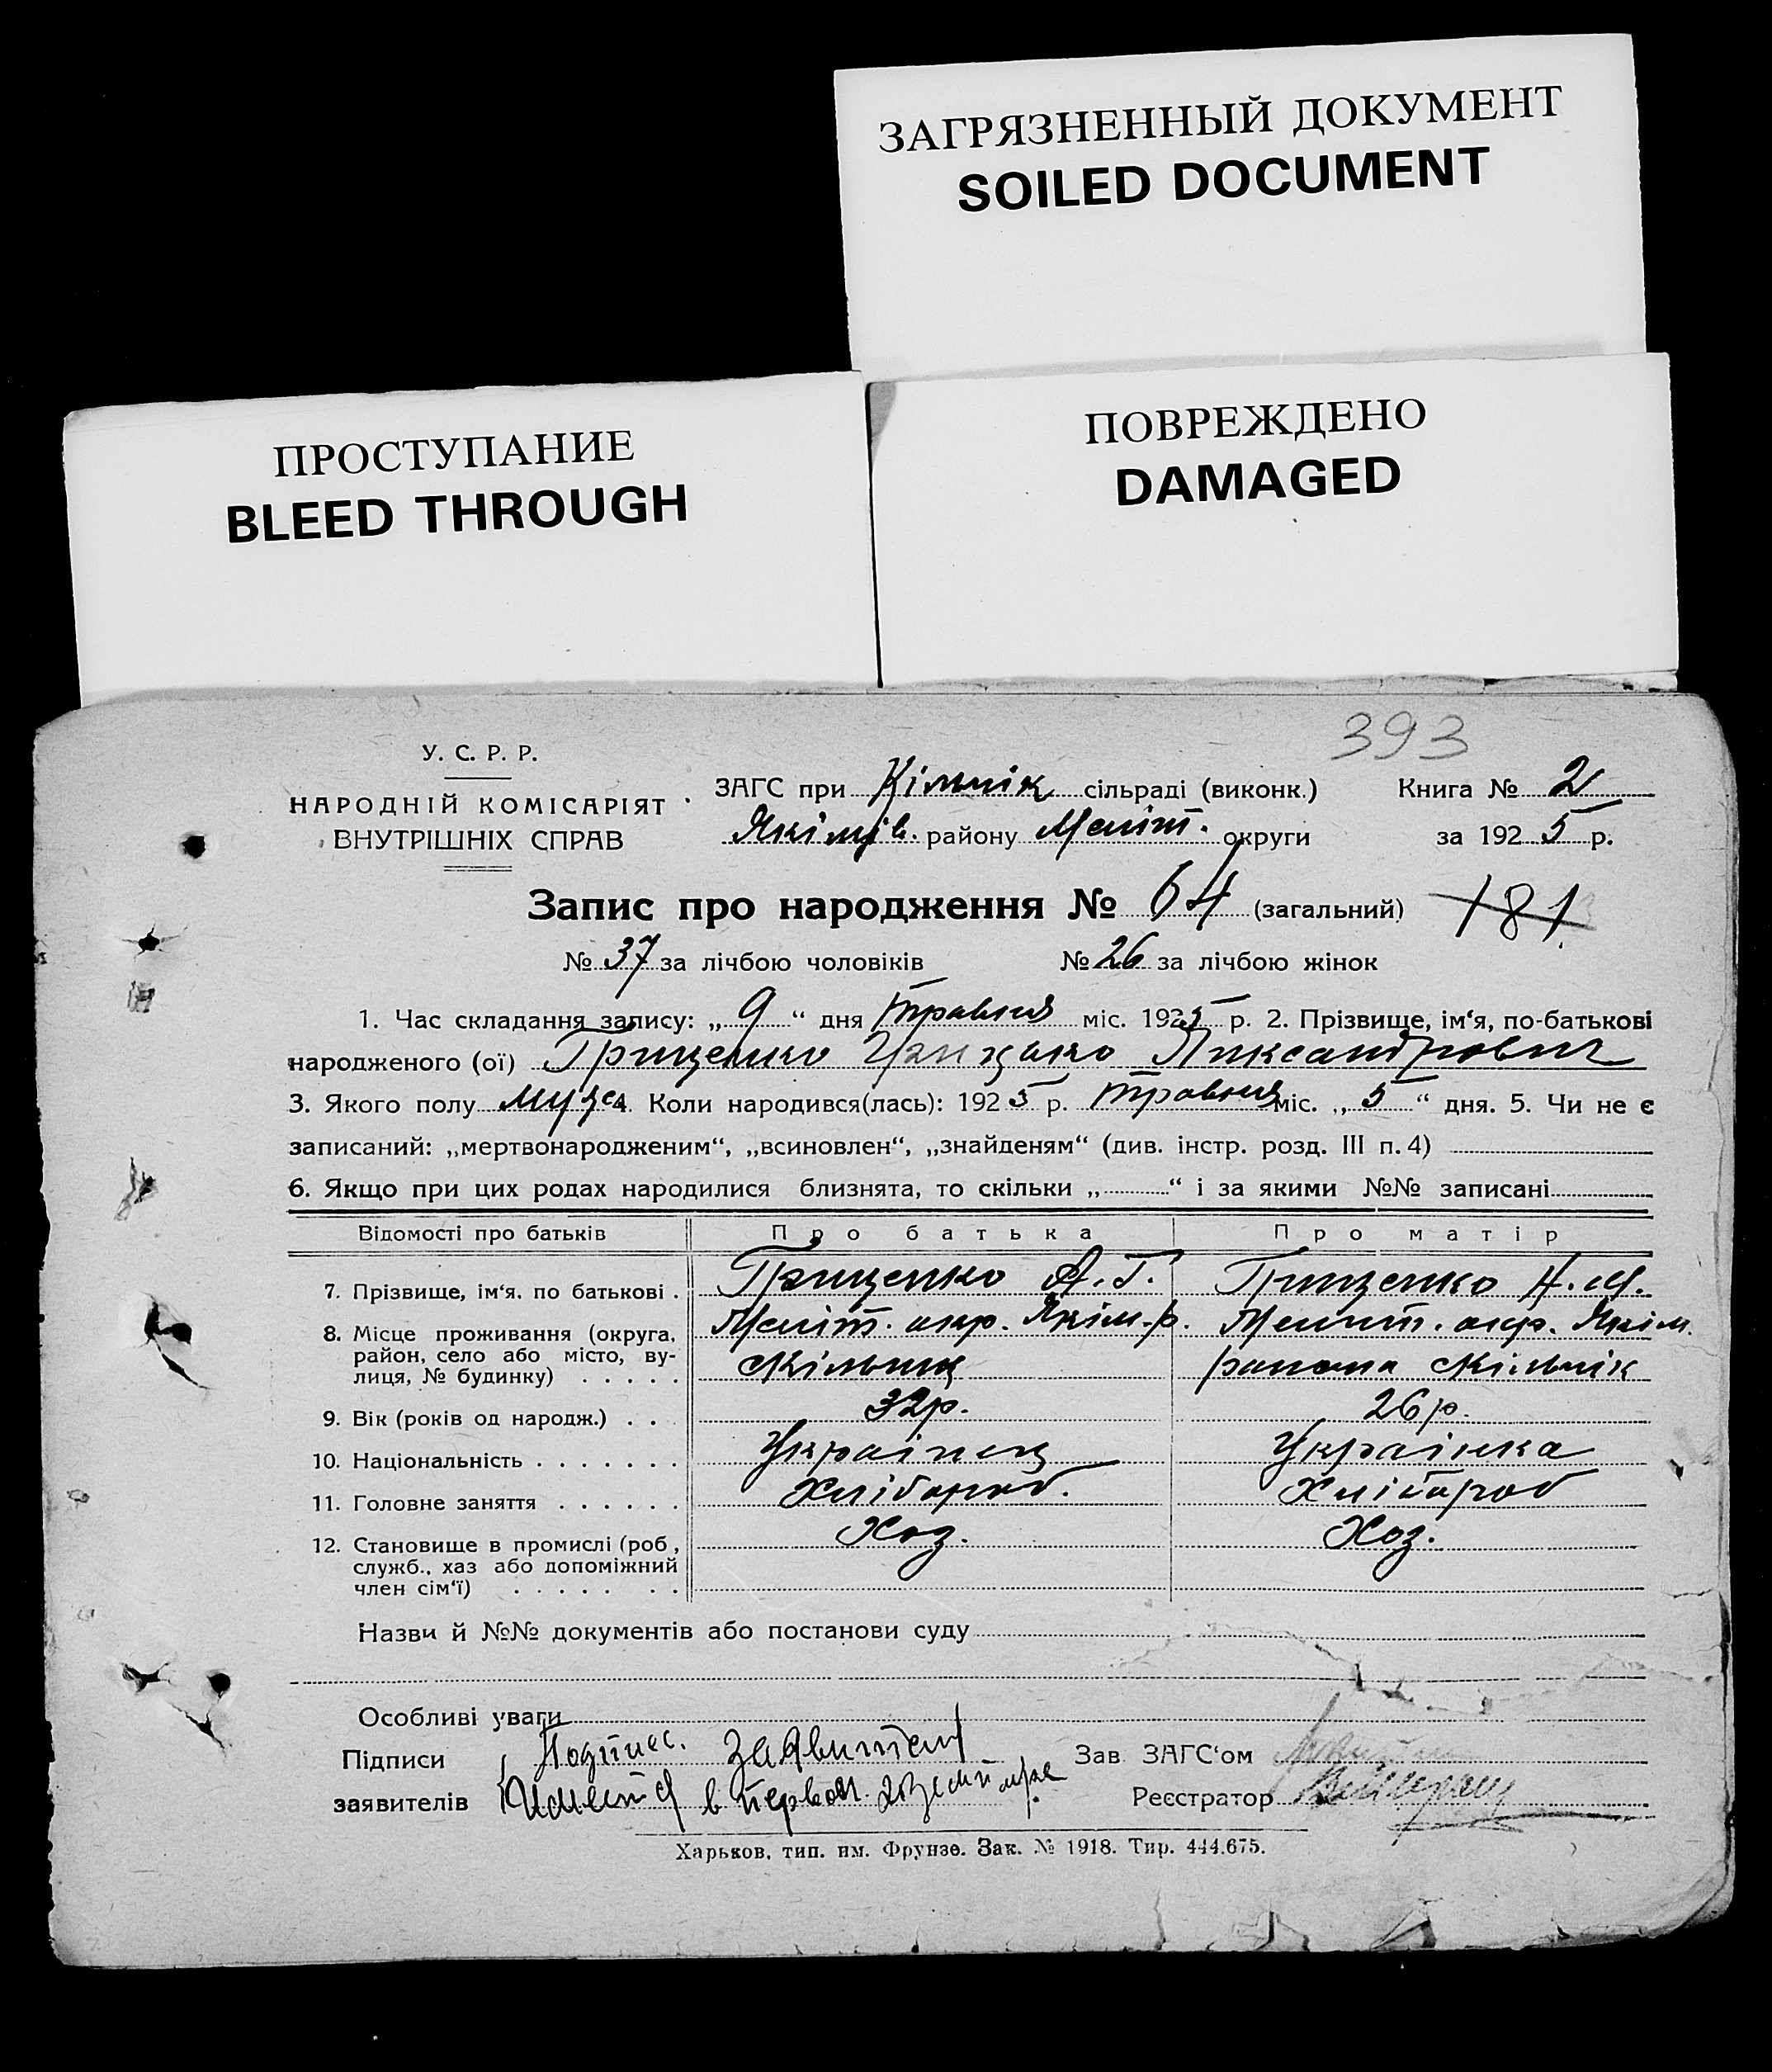 ЗАГРЯЗНЕННЫЙ ДОКУМЕНТ
SOILED DOCUMENT
ПРОСТУПАНИЕ
BLEED THROUGH
ПОВРЕЖДЕНО
DAMAGED
393
У. С. Р. Р.
НАРОДНІЙ КОМІСАРІЯТ
ВНУТРІШНІХ СПРАВ
ЗАГС при сільраді (виконк.) Книга № 2
Якімів. району Меліт. округи за 1925 р.
Запис про народження № 64 (загальний) 181
№ 37 за лічбою чоловіків № 26 за лічбою жінок
1. Час складання запису: „ 9 “ дня травня міс. 1925 р. 2. Прізвище, ім‘я, по-батькові
народженого (ої) Грищенко
3. Якого полу муж. 4. Коли народився(лась): 1925 р. травня міс. „ 5 “ дня. 5. Чи не є
записаний: „мертвонародженим“, „всиновлен“, „знайденям“ (див. інстр. розд. III п. 4)
6. Якщо при цих родах народилися близнята, то скільки „ “ і за якими №№ записані
Відомості про батьків Про батька Про матір
7. Прізвище, ім‘я. по батькові . Грищенко А. Г. Грищенко
8. Місце проживання (округа, район, село або місто, вулиця, № будинку) . . . . . Меліт. окр. Якім. р. Меліт. окр. Якім.
9. Вік (років од народж.) . . . 32р. 26р.
10. Національність . . . . . . . Українец Українка
11. Головне заняття . . . . . . Хлібороб. Хлібороб
12. Становище в промислі (роб., служб., хаз або допоміжний член сім‘ї) . . . . . . . Хоз. Хоз.
Назви й №№ документів або постанови суду
Особливі уваги
Підписи Подпис. заявител
заявителів имеется в первом экземпляре
Зав ЗАГС‘ом
Реєстратор
Харьков, тип. им. Фрунзе. Зак. № 1918. Тир. 444.675.